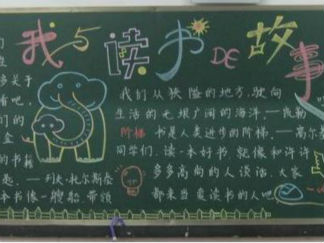 我与读书DE故事
们
生
多关于
看吧,
们的
金
的书籍
是。——列夫·托尔斯泰
本书像一艘船,带领
我们从狭隘的地方,驶向
生活的无垠广阔的海洋。——凯勒
阶梯 书是人类进步的阶梯。——高尔
同学们,读一本好书,就像和许许
多多高尚的人谈话,大家
都来当爱读书的人吧